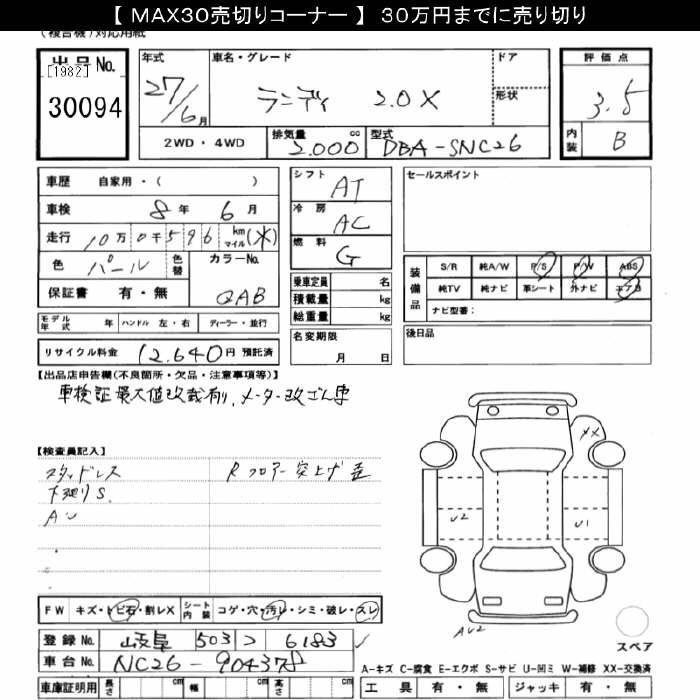 【 MAX30売切りコーナー 】 30万円までに売り切り
(複合機)対応用紙
出品No.
[1982]
30094
年式
27/6月
車名・グレード
ランディ 2.0X
ドア
形状
評価点
3.5
内装 B
2WD・4WD
排気量 cc
2.000
型式
DBA-SNC26
車歴 自家用・( )
車検 8年 6月
走行 10万0千596 km マイル (※)
色 パール 色替
カラーNo.
QAB
保証書 有・無
シフト AT
冷房 AC
燃料 G
乗車定員 名
積載量 kg
総重量 kg
セールスポイント
装備品
S/R 純A/W P/S P/W ABS
純TV 純ナビ 革シート 外ナビ エアB
ナビ型番:
モデル年式 年 ハンドル 左・右 ディーラー・並行
リサイクル料金 12.640円 預託済
名変期限
月 日
後日品
【出品店申告欄(不良箇所・欠品・注意事項等)】
車検証最大値改裁有り、メーター改ざん車
【検査員記入】
スタッドレス
下廻りS.
AU
Rフロアー突上げ歪
XX
U2
U1
AU2
FW キズ・トビ石・割レX シート内装 コゲ・穴・汚レ・シミ・破レ・スレ
スペア
登録No. 岐阜 503 つ 6183
車台No. NC26-904378
A-キズ C-腐食 E-エクボ S-サビ U-凹ミ W-補修 XX-交換済
車庫証明用 長さ cm 幅 cm 高さ cm
工具 有・無 ジャッキ 有・無